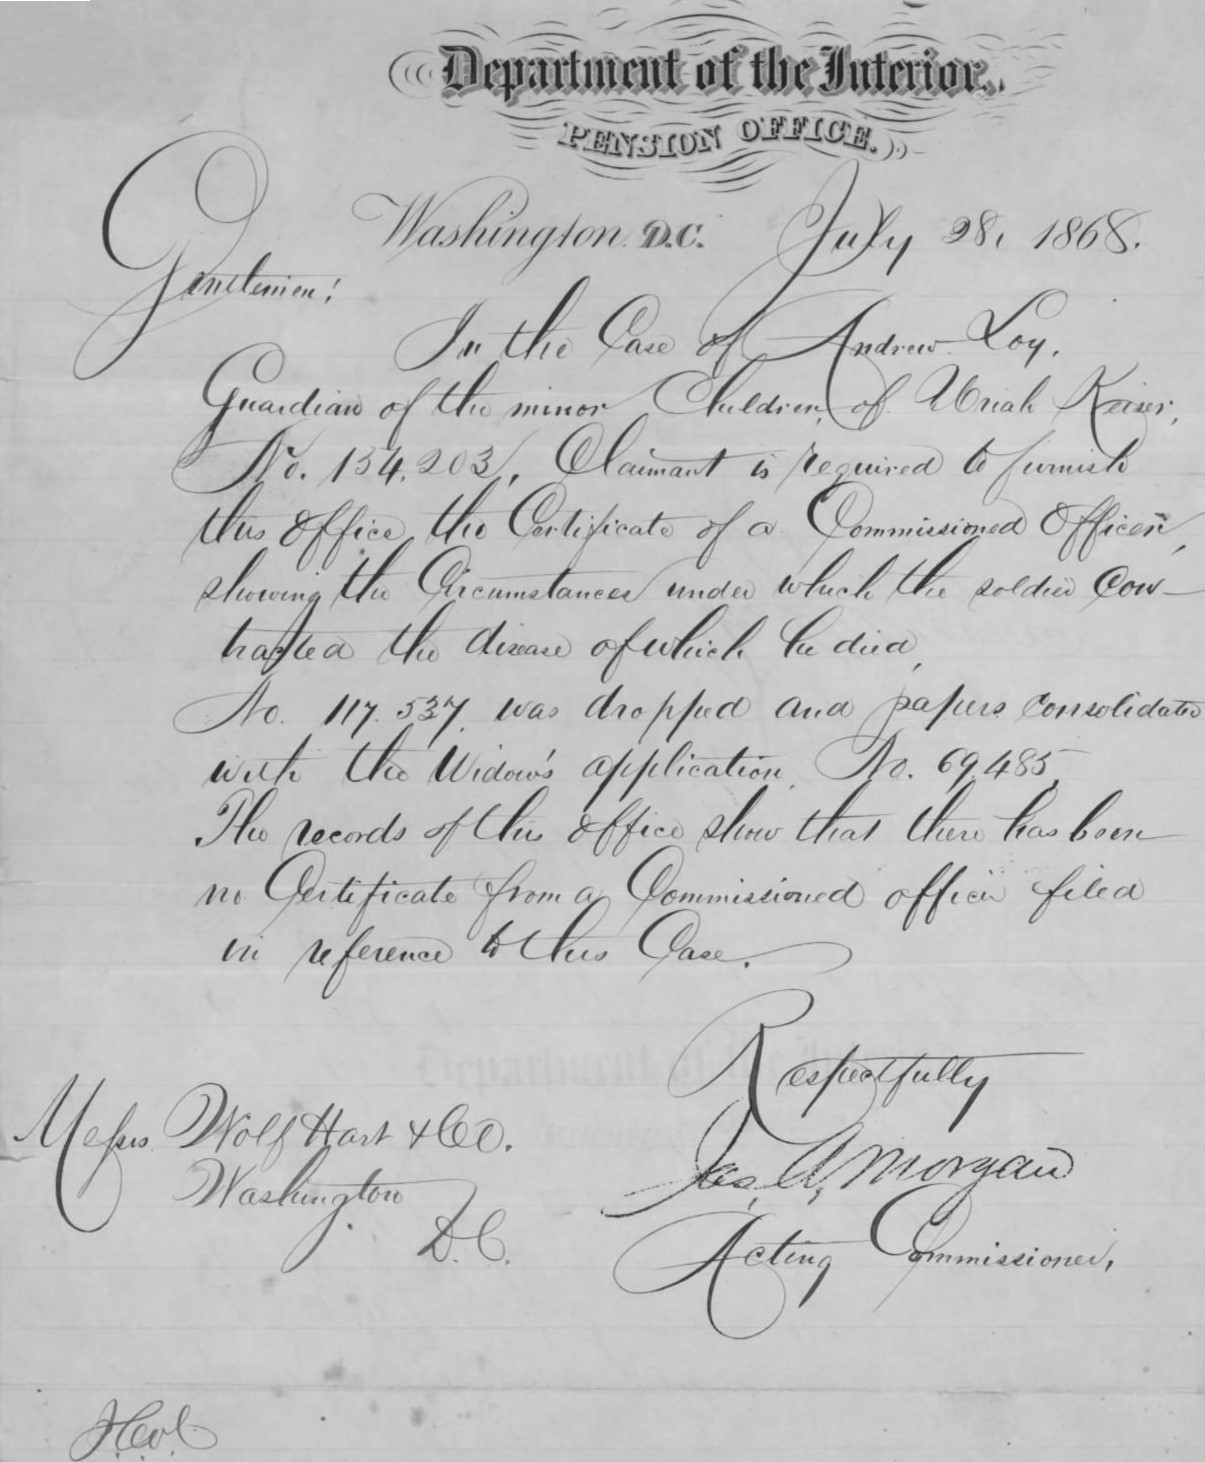 Department of the Interior,
PENSION OFFICE.
Washington D.C. July 28, 1868.
Gentlemen;
In the Case of Andrew Loy,
Guardian of the minor Children, of Uriah Keiser,
No. 154.203, Claimant is required to furnish
this Office, the Certificate of a Commissioned Officer,
showing the Circumstances under which the soldier Con-
tracted the disease of which he died,
No. 117.537, was dropped and papers consolidated
with the Widow's application, No. 69,485,
The records of this Office show that there has been
no Certificate from a Commissioned officer filed
in reference to this Case.
Respectfully
Jas. A. Morgan
Acting Commissioner,
Messrs Wolf Hart & Co.
Washington
D.C.